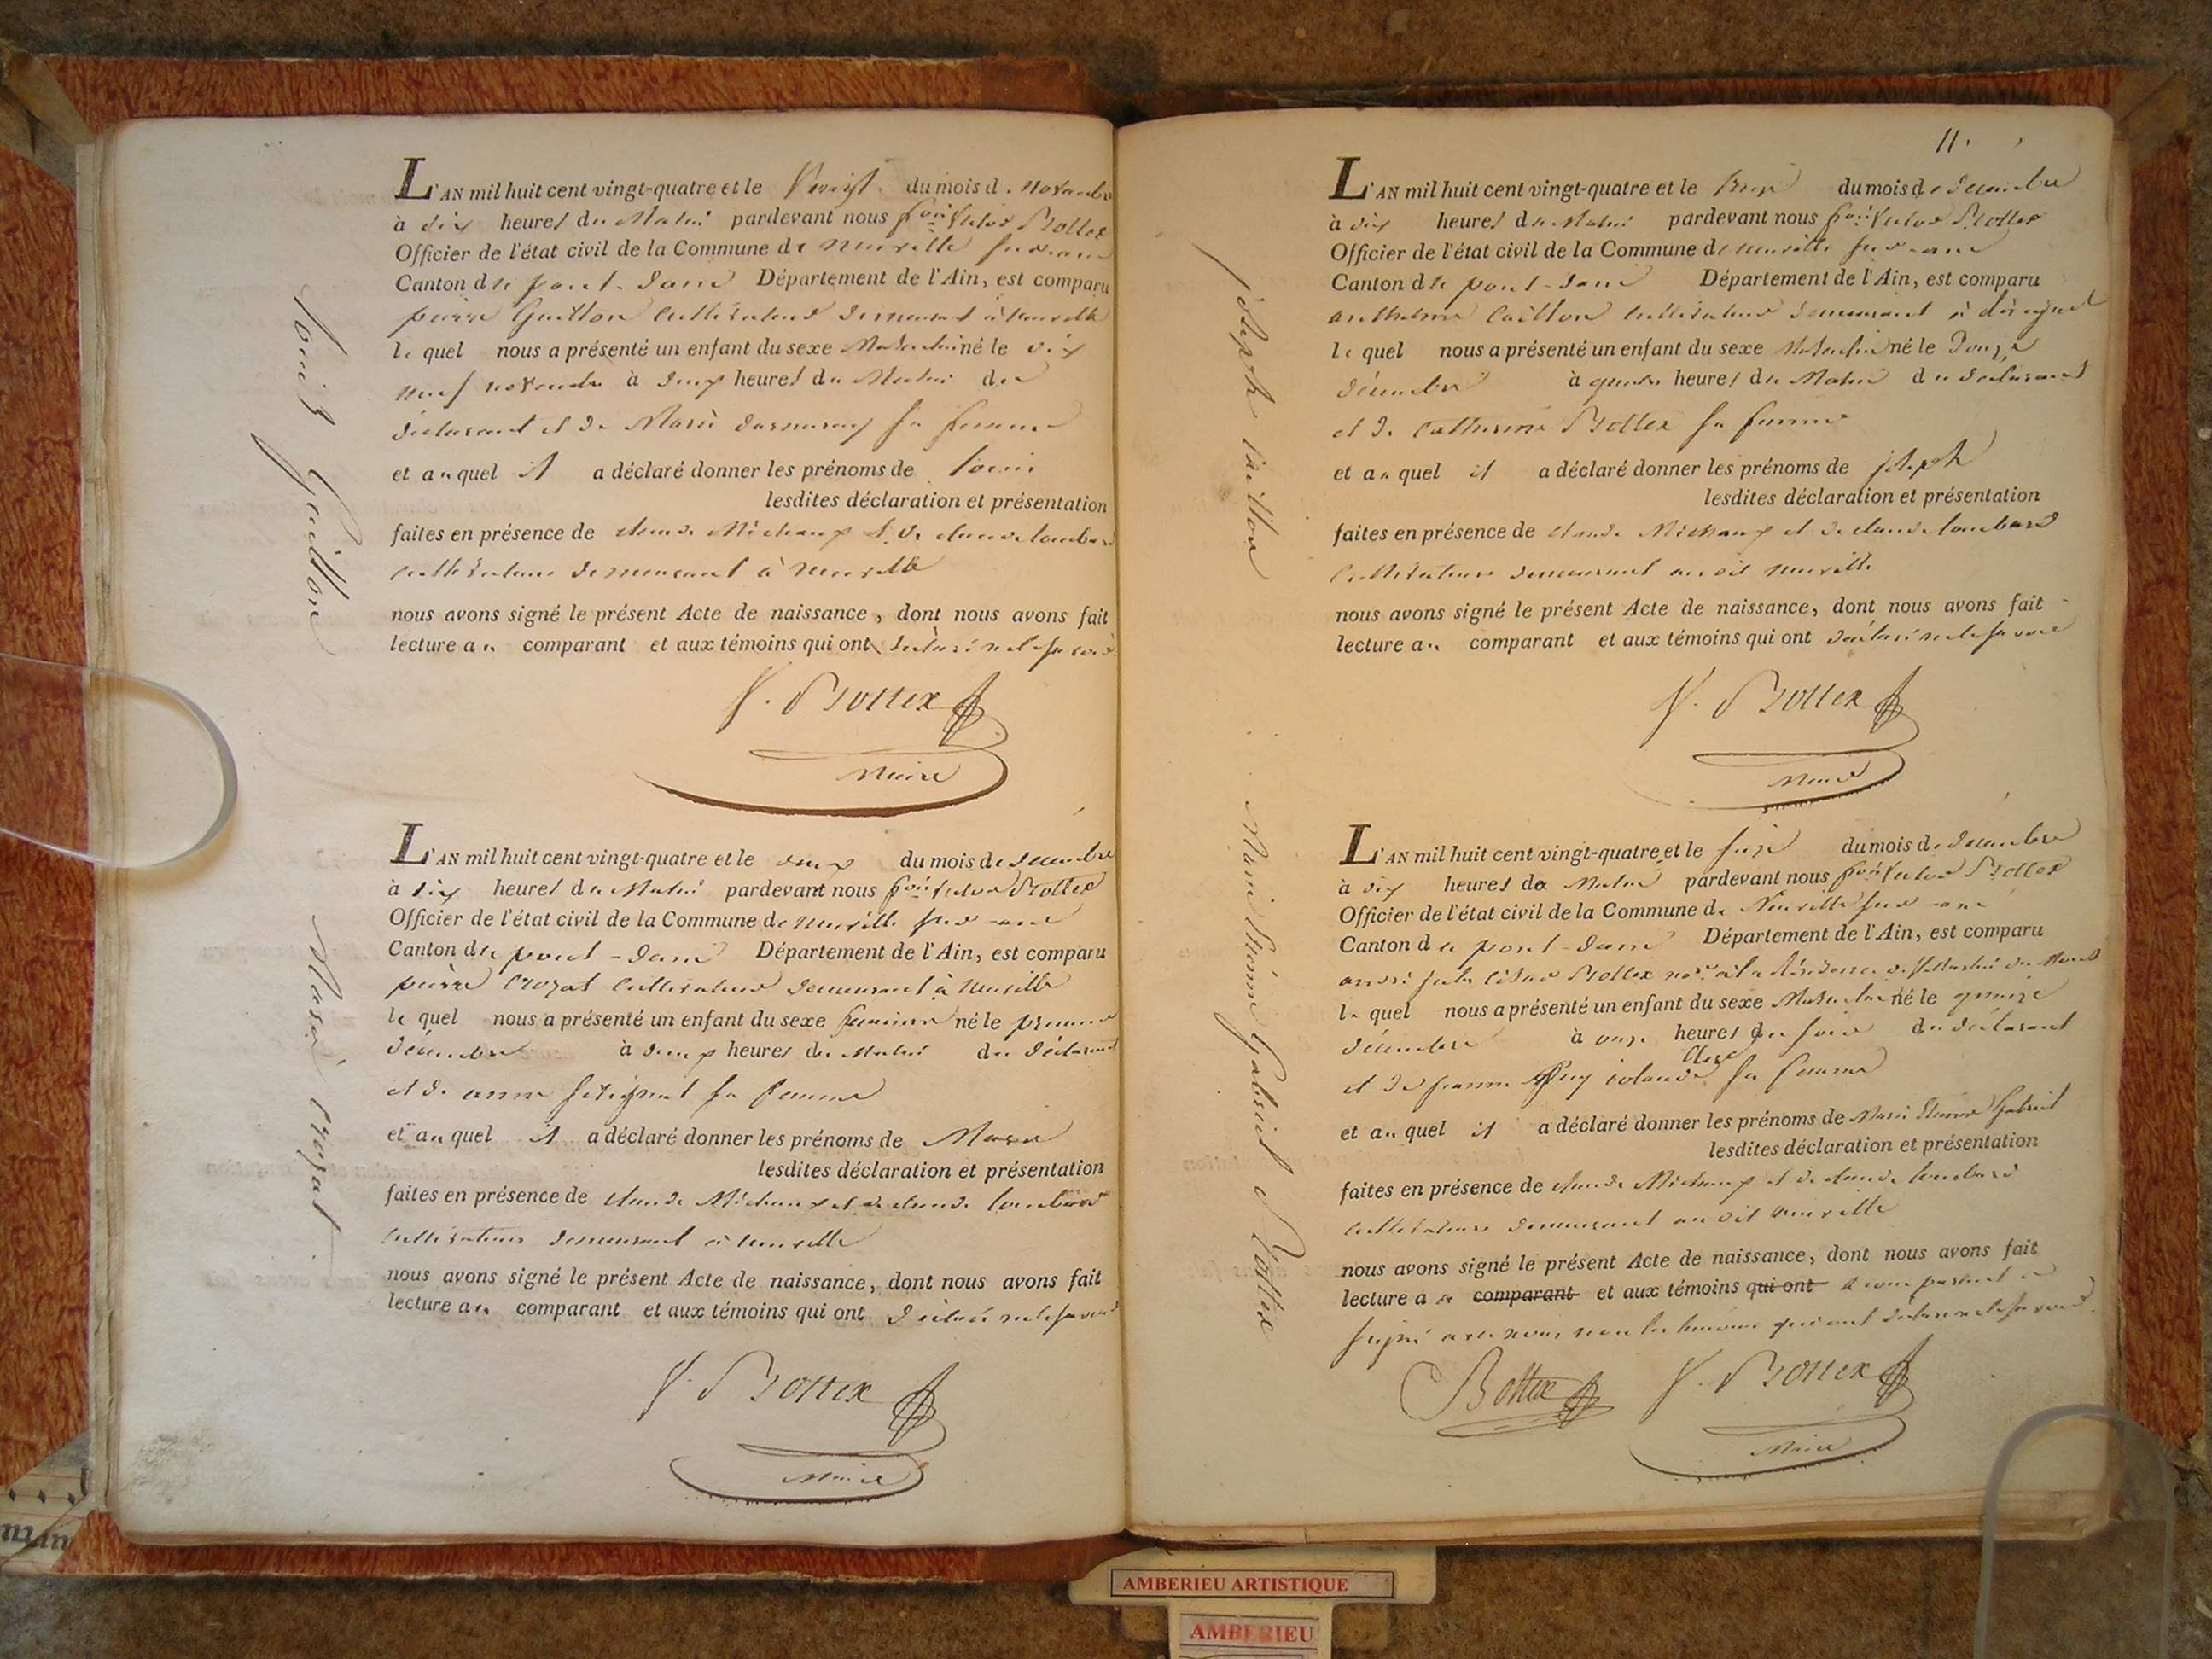 L'AN mil huit cent vingt-quatre et le Vingt du mois de novembre
à dix heures du Matin pardevant nous fois Victor Bottex
Officier de l'état civil de la Commune de neuville sur ain
Canton de pont-dain Département de l'Ain, est comparu
pierre Guillon cultivateur demeurant à neuville
le quel nous a présenté un enfant du sexe Masculin né le dix
neuf novembre à deux heures du Matin du
déclarant et de Marie sa femme
et auquel il a déclaré donner les prénoms de Louis
lesdites déclaration et présentation
faites en présence de claude Michaux & de claude lombard
cultivateurs demeurant à neuville
nous avons signé le présent Acte de naissance, dont nous avons fait
lecture au comparant et aux témoins qui ont déclaré ne le savoir
V. Bottex
Maire
Louis Guillon
L'AN mil huit cent vingt-quatre et le deux du mois de decembre
à dix heures du Matin pardevant nous fois Victor Bottex
Officier de l'état civil de la Commune de neuville sur ain
Canton de pont-dain Département de l'Ain, est comparu
pierre Crozat cultivateur demeurant à neuville
le quel nous a présenté un enfant du sexe feminin né le premier
décembre à deux heures du Matin du déclarant
et de anne sa femme
et auquel il a déclaré donner les prénoms de Marie
lesdites déclaration et présentation
faites en présence de claude Michaux et de claude lombard
cultivateurs demeurant à neuville
nous avons signé le présent Acte de naissance, dont nous avons fait
lecture au comparant et aux témoins qui ont déclaré ne le savoir
V. Bottex
Maire
Marie Crozat
11.
L'AN mil huit cent vingt-quatre et le treize du mois de decembre
à dix heures du Matin pardevant nous fois Victor Bottex
Officier de l'état civil de la Commune de neuville sur ain
Canton de pont-dain Département de l'Ain, est comparu
anthelme Caillon cultivateur demeurant à
le quel nous a présenté un enfant du sexe Masculin né le Douze
décembre à quatre heures du Matin du déclarant
et de catherine Bottex sa femme
et auquel il a déclaré donner les prénoms de joseph
lesdites déclaration et présentation
faites en présence de claude Michaux et de claude lombard
cultivateurs demeurant au dit neuville
nous avons signé le présent Acte de naissance, dont nous avons fait
lecture au comparant et aux témoins qui ont déclaré ne le savoir
V. Bottex
Maire
joseph Caillon
L'AN mil huit cent vingt-quatre et le seize du mois de decembre
à dix heures du Matin pardevant nous fois Victor Bottex
Officier de l'état civil de la Commune de Neuville sur ain
Canton de pont-dain Département de l'Ain, est comparu
Bottex à la Résidence de
le quel nous a présenté un enfant du sexe Masculin né le quinze
décembre à onze heures du soir du déclarant
et de jeanne sa femme
et auquel il a déclaré donner les prénoms de Marie Etienne Gabriel
lesdites déclaration et présentation
faites en présence de claude Michaux et de claude lombard
cultivateurs demeurant au dit neuville
nous avons signé le présent Acte de naissance, dont nous avons fait
lecture a comparant et aux témoins qui ont le comparant a
signé avec nous non les temoins qui ont déclaré ne le savoir
Bottex V. Bottex
Maire
Marie Etienne Gabriel Bottex
AMBERIEU ARTISTIQUE
AMBERIEU